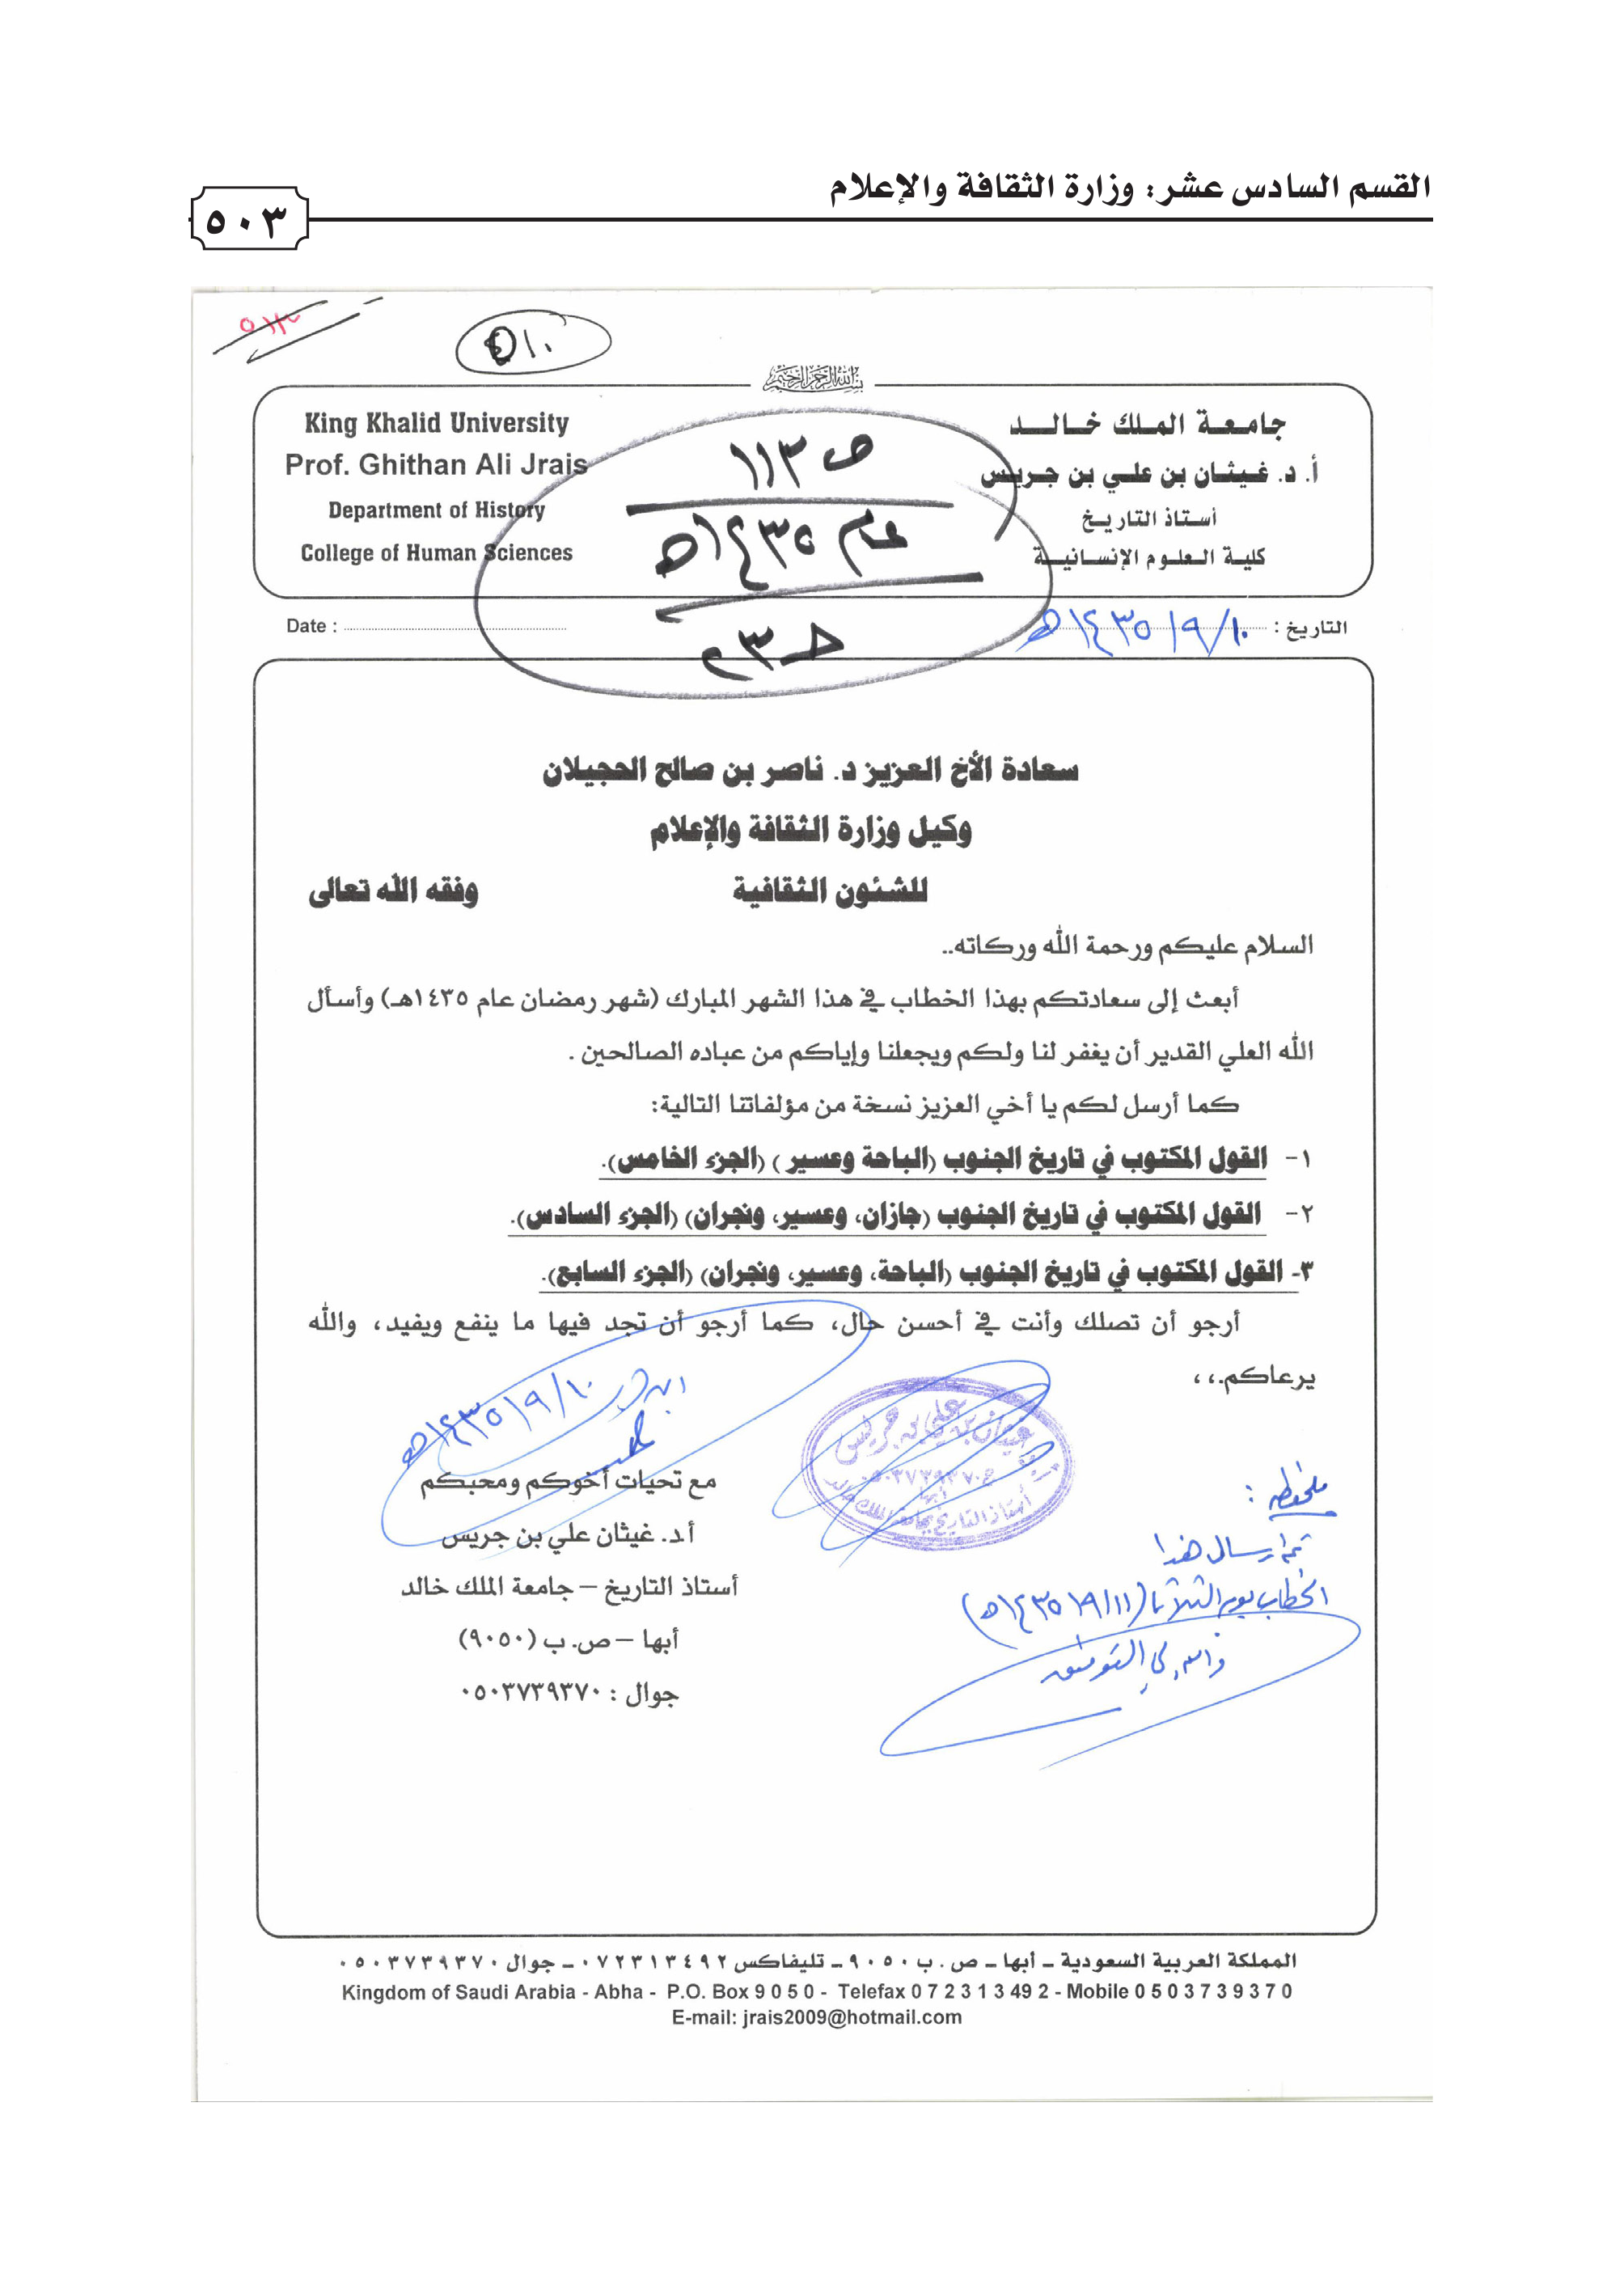 القسم السادس عشر: وزارة الثقافة والإعلام
٥٠٣
٥١٠
بسم الله الرحمن الرحيم
جامعة الملك خالد
أ. د. غيثان بن علي بن جريس
أستاذ التاريخ
كلية العلوم الإنسانية
King Khalid University
Prof. Ghithan Ali Jrais
Department of History
College of Human Sciences
ص ١١٣
عام ١٤٣٥هـ
التاريخ : ١٤٣٥/٩/١٠هـ
Date :
سعادة الأخ العزيز د. ناصر بن صالح الحجيلان
وكيل وزارة الثقافة والإعلام
للشئون الثقافية وفقه الله تعالى
السلام عليكم ورحمة الله وركاته..
أبعث إلى سعادتكم بهذا الخطاب في هذا الشهر المبارك (شهر رمضان عام ١٤٣٥هـ) وأسأل
الله العلي القدير أن يغفر لنا ولكم ويجعلنا وإياكم من عباده الصالحين .
كما أرسل لكم يا أخي العزيز نسخة من مؤلفاتنا التالية:
١- القول المكتوب في تاريخ الجنوب (الباحة وعسير ) (الجزء الخامس).
٢- القول المكتوب في تاريخ الجنوب (جازان، وعسير، ونجران) (الجزء السادس).
٣- القول المكتوب في تاريخ الجنوب (الباحة، وعسير، ونجران) (الجزء السابع).
أرجو أن تصلك وأنت في أحسن حال، كما أرجو أن تجد فيها ما ينفع ويفيد، والله
يرعاكم.،،
١٤٣٥/٩/١٠هـ
مع تحيات أخوكم ومحبكم
أ.د. غيثان علي بن جريس
أستاذ التاريخ – جامعة الملك خالد
أبها – ص. ب (٩٠٥٠)
جوال : ٠٥٠٣٧٣٩٣٧٠
غيثان بن علي بن جريس
ج ٠٥٠٣٧٣٩٣٧٠
أبها
أستاذ التاريخ بجامعة الملك خالد
ملحوظة :
تم إرسال هذا
الخطاب يوم الثلاثاء (١٤٣٥/٩/١١هـ)
والله ولي التوفيق
المملكة العربية السعودية – أبها – ص . ب ٩٠٥٠ – تليفاكس ٠٧٢٣١٣٤٩٢ – جوال ٠٥٠٣٧٣٩٣٧٠
Kingdom of Saudi Arabia - Abha - P.O. Box 9 0 5 0 - Telefax 0 7 2 3 1 3 49 2 - Mobile 0 5 0 3 7 3 9 3 7 0
E-mail: jrais2009@hotmail.com